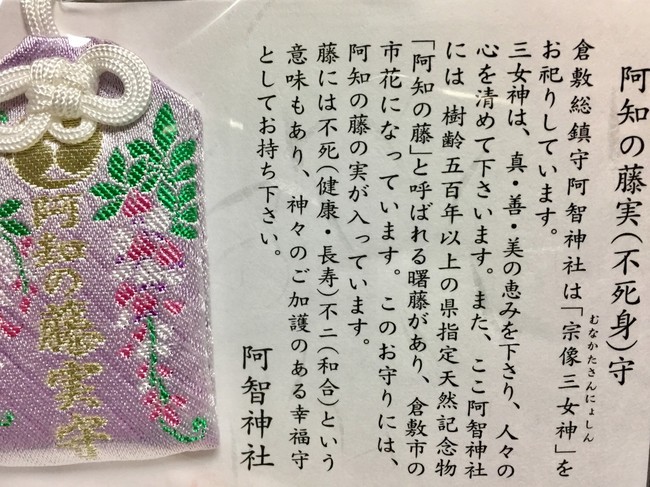 阿知の藤実(不死身)守
倉敷総鎮守阿智神社は「宗像三女神」を
むなかたさんにょしん
お祀りしています。
三女神は、真・善・美の恵みを下さり、人々の
心を清めて下さいます。また、ここ阿智神社
には 樹齢五百年以上の県指定天然記念物
「阿知の藤」と呼ばれる曙藤があり、倉敷市の
市花になっています。このお守りには、
阿知の藤の実が入っています。
藤には不死(健康・長寿)不二(和合)という
意味もあり、神々のご加護のある幸福守
としてお持ち下さい。
阿智神社
阿知の藤実守